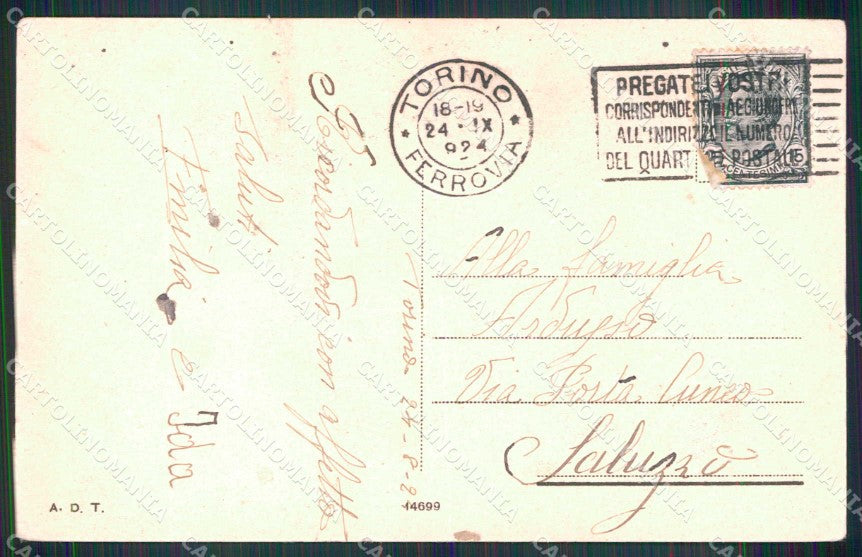 TORINO
18-19
24 · IX
924
FERROVIA
PREGATE I VOSTRI
CORRISPONDENTI DI AGGIUNGERE
ALL'INDIRIZZO IL NUMERO
DEL QUART. POSTALE
15
Ricordandovi con affetto
Saluti
Emilia e Ida
Torino 24-8-2
Alla famiglia
Via Porta Cuneo
Saluzzo
A. D. T.
14699
CARTOLINOMANIA